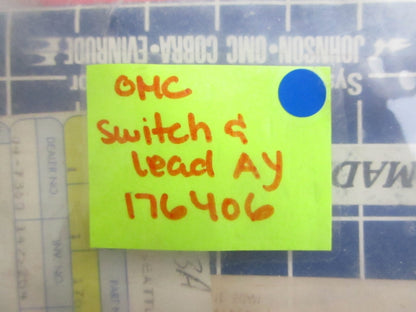 JOHNSON•OMC COBRA•EVINRUDE
Sys
or
OMC
switch &
lead AY
176406
MAD
DEALER NO.
INV. NO.